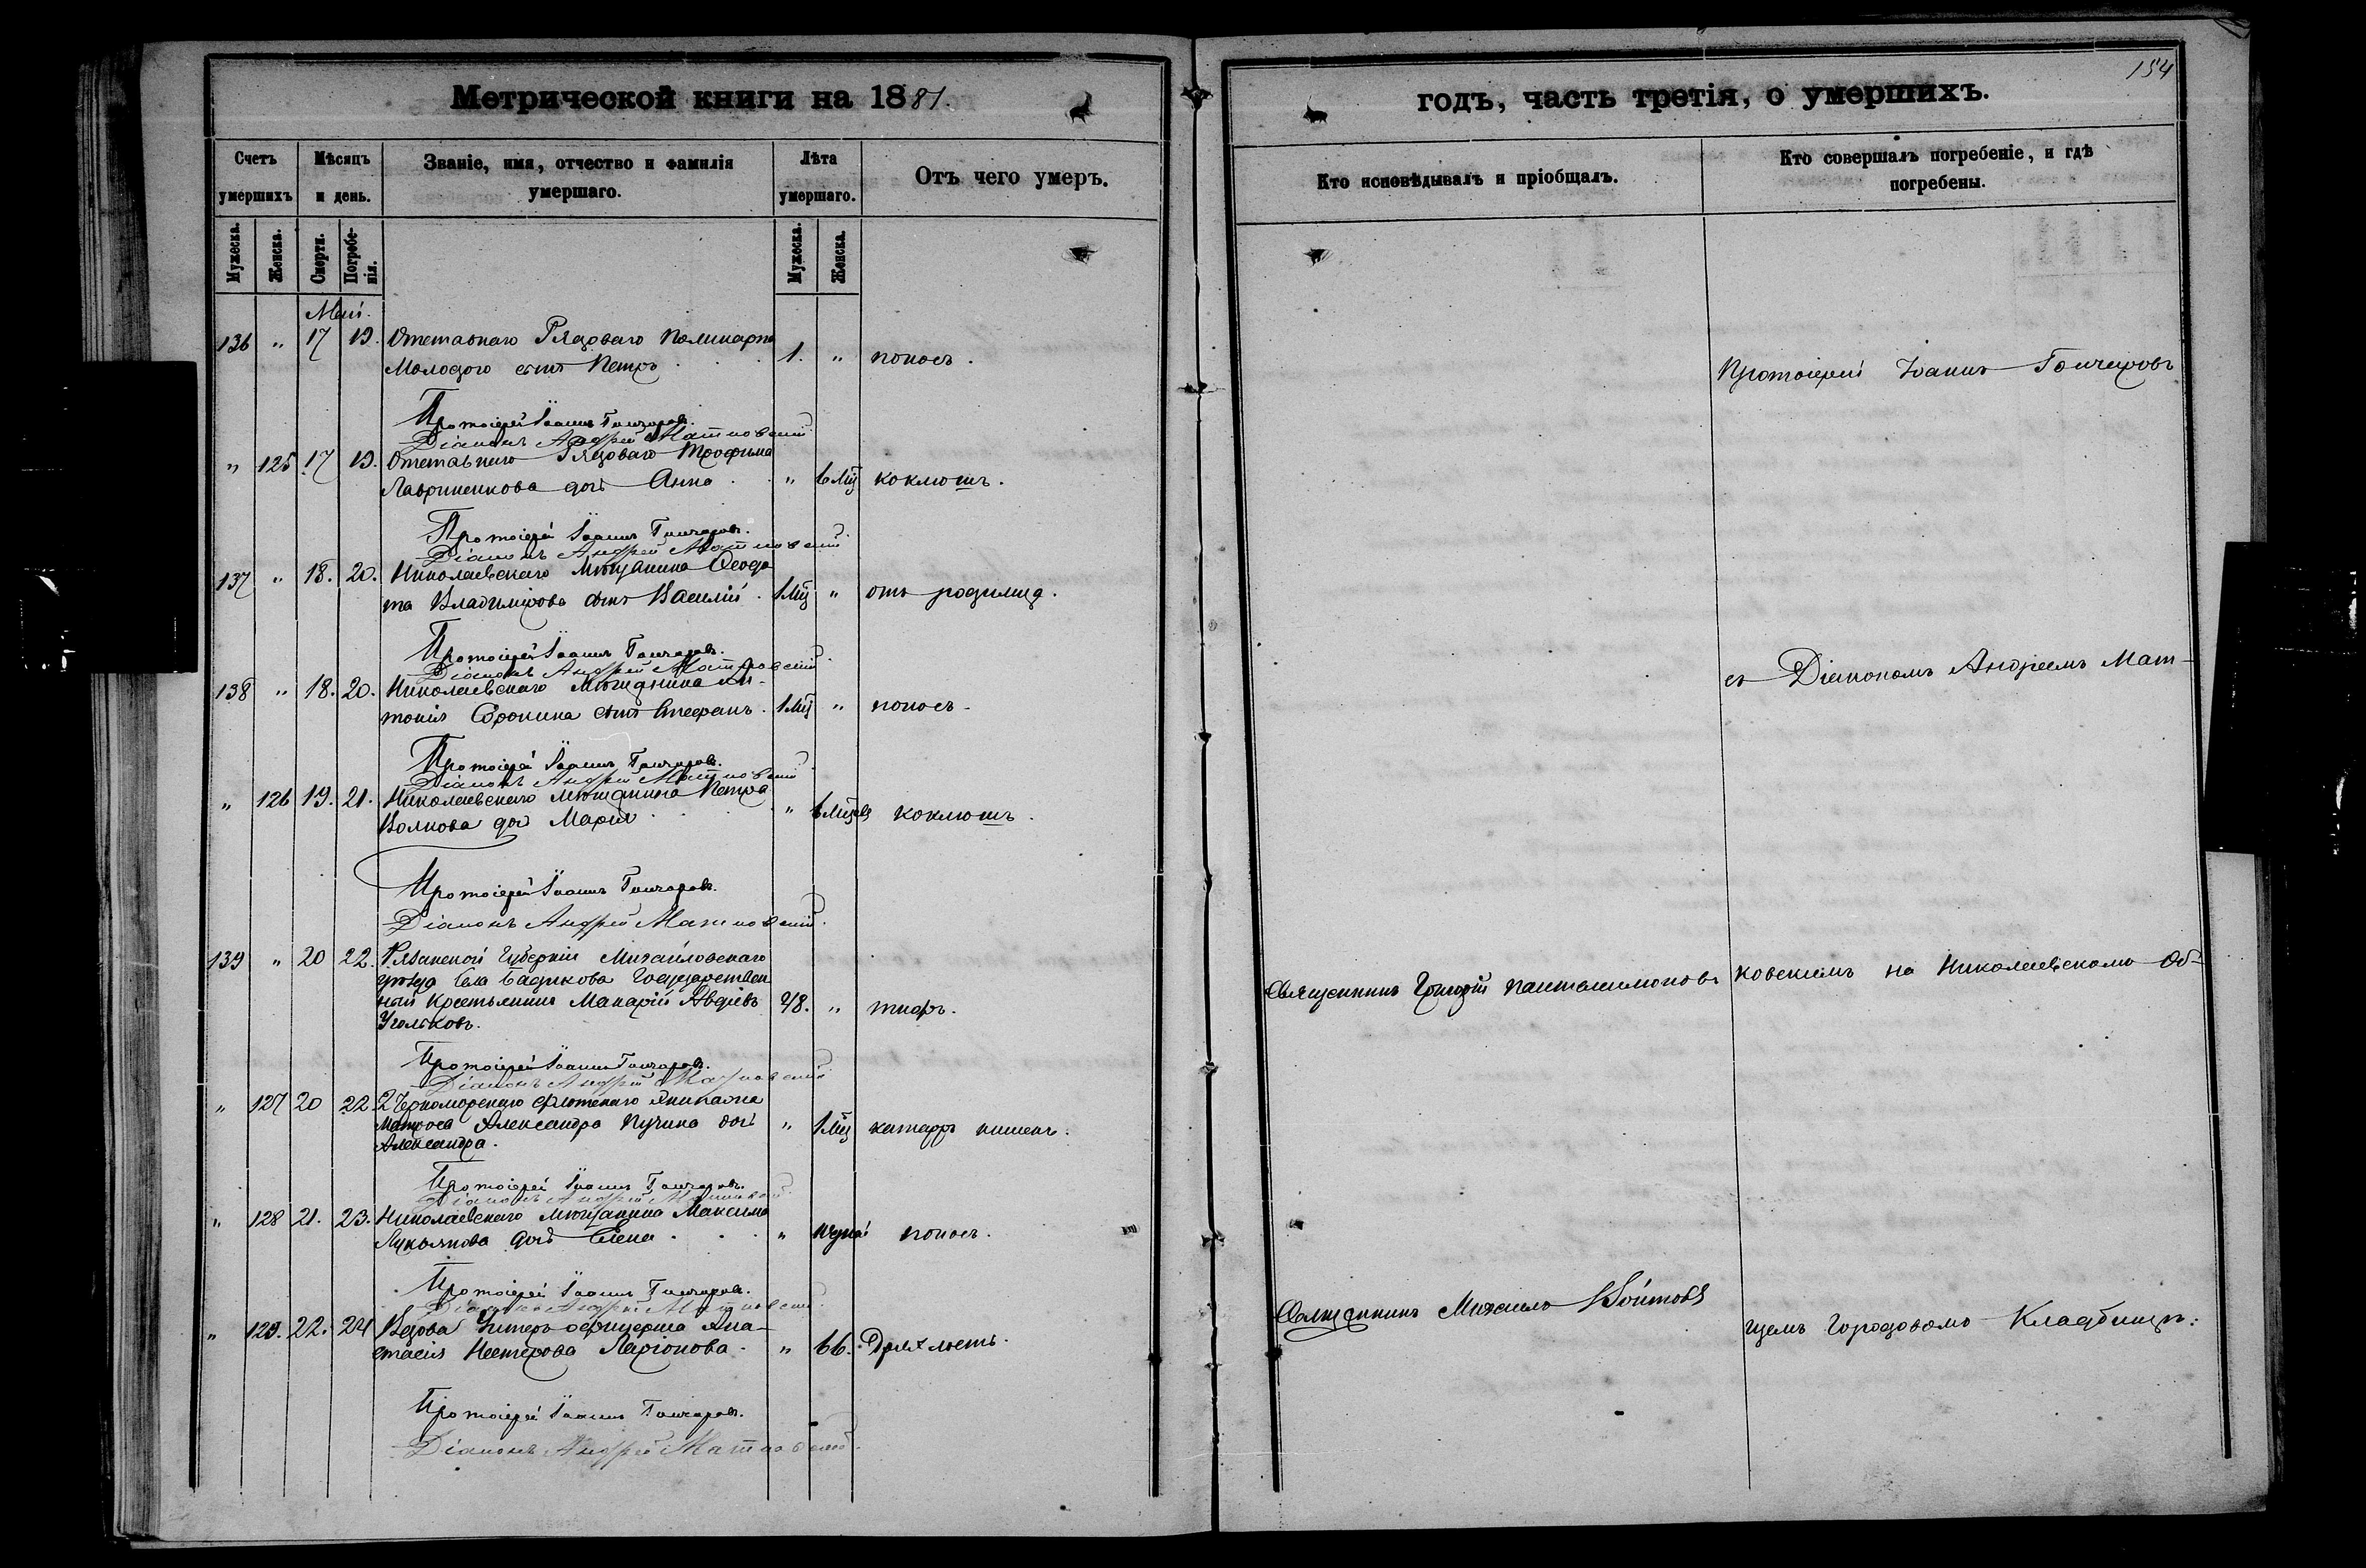 Метрической книги на 1881.
Счетъ умершихъ
Мѣсяцъ и день.
Званіе, имя, отчество и фамилія умершаго.
Лѣта умершаго.
Отъ чего умеръ.
Мужеска.
Женска.
Смерти.
Погребенія.
Мужеска.
Женска.
Май.
136 " 17 19. Отставнаго Рядоваго Поликарпа
Молодого сынъ Петръ 1. " поносъ.
Протоіерей Іоаннъ Гончаровъ.
Діаконъ Андрей Матковскій
" 125 17 19. Отставнаго Рядоваго Трофима
Лавриненкова дочь Анна " 6 Мц коклюшъ.
Протоіерей Іоаннъ Гончаровъ.
Діаконъ Андрей Матковскій
137 " 18. 20. Николаевскаго Мѣщанина Ѳеодо
та Владимірова сынъ Василій 1 Мц " отъ родимца.
Протоіерей Іоаннъ Гончаровъ.
Діаконъ Андрей Матковскій
138 " 18. 20. Николаевскаго Мѣщанина Ан-
тонія Сорокина сынъ Стефанъ 1 Мц " поносъ
Протоіерей Іоаннъ Гончаровъ.
Діаконъ Андрей Матковскій
" 126 19. 21. Николаевскаго мѣщанина Петра
Волкова дочь Марія " 6 Мцевъ коклюшъ.
Протоіерей Іоаннъ Гончаровъ.
Діаконъ Андрей Матковскій.
139 " 20 22. Рязанской Губерніи Михайловскаго
уѣзда Села Государствен
ный Крестьянинъ Макарій Авдѣевъ 48. " тифъ.
Угольковъ.
Протоіерей Іоаннъ Гончаровъ.
Діаконъ Андрей Матковскій
" 127 20 22 2 Черноморскаго флотскаго Экипажа
Матроса Александра Пучина дочь " 1 Мц катарръ кишекъ.
Александра.
Протоіерей Іоаннъ Гончаровъ.
Діаконъ Андрей Матковскій
" 128 21. 23. Николаевскаго мѣщанина Максима
Лукьянова дочь Елена " поносъ.
Протоіерей Іоаннъ Гончаровъ.
Діаконъ Андрей Матковскій
" 129. 22. 24 Вдова Унтеръ офицерша Ана-
стасія Нестерова Ларіонова " 66. Дряхлость.
Протоіерей Іоаннъ Гончаровъ.
Діаконъ Андрей Матковскій.
154
годъ, часть третія, о умершихъ.
Кто исповѣдывалъ и пріобщалъ.
Кто совершалъ погребеніе, и гдѣ погребены.
Протоіерей Іоаннъ Гончаровъ
съ Діакономъ Андреемъ Мат-
Священникъ Григорій Пантелимоновъ
ковскимъ на Николаевскомъ Об-
Священникъ Михаилъ Войтовъ
щемъ Городовомъ Кладбищѣ.